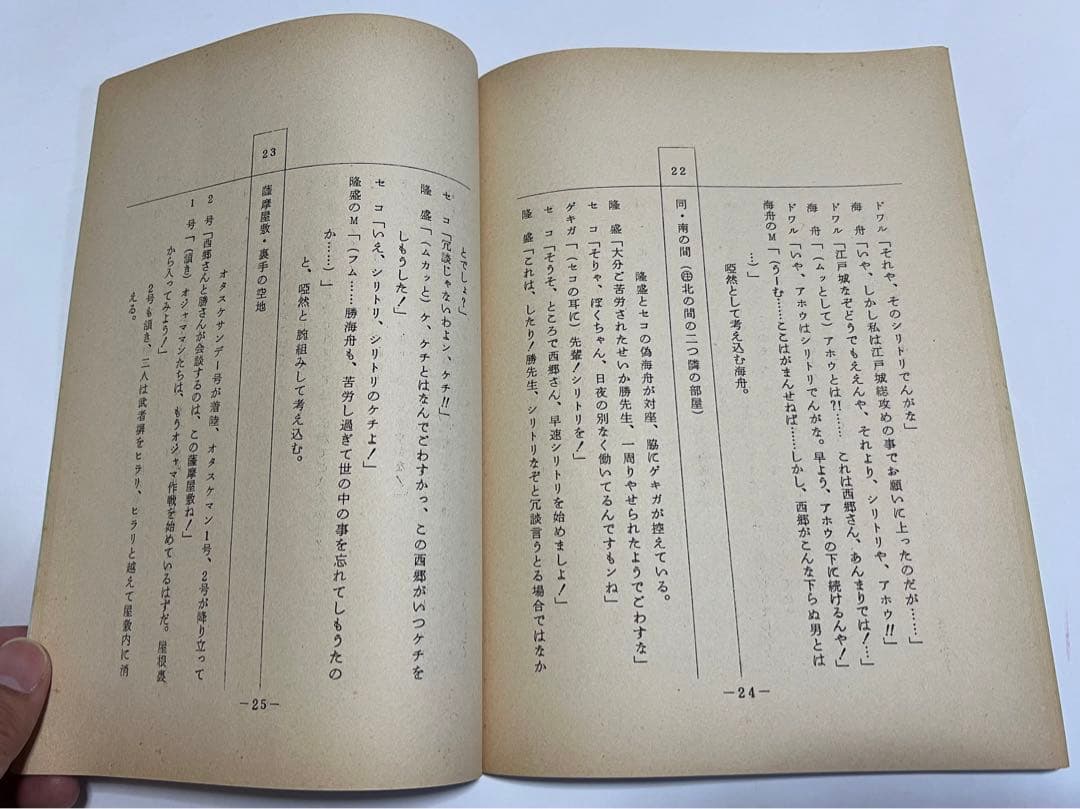 ドワル「それや、そのシリトリでんがな」
海舟「いや、しかし私は江戸城総攻めの事でお願いに上ったのだが……」
ドワル「江戸城なぞどうでもええんや、それより、シリトリや、アホウ!!」
海舟「(ムッとして)アホウとは?!……これは西郷さん、あんまりでは!…」
ドワル「いや、アホウはシリトリでんがな。早よう、アホウの下に続けるんや!」
海舟のM「(うーむ……ここはがまんせねば……しかし、西郷がこんな下らぬ男とは
…)」
啞然として考え込む海舟。
22
同・南の間(㊟北の間の二つ隣の部屋)
隆盛とセコの偽海舟が対座、脇にゲキガが控えている。
隆盛「大分ご苦労されたせいか勝先生、一周りやせられたようでごわすな」
セコ「そりゃ、ぼくちゃん、日夜の別なく働いてるんですもンね」
ゲキガ「(セコの耳に)先輩!シリトリを!」
セコ「そうそ、ところで西郷さん、早速シリトリを始めましよ!」
隆盛「これは、したり!勝先生、シリトリなぞと冗談言うとる場合ではなか
—24—
とでしょ?」
セコ「冗談じゃないわよン、ケチ!!」
隆盛「(ムカッと)ケ、ケチとはなんでごわすかっ、この西郷がいつケチを
しもうした!」
セコ「いえ、シリトリ、シリトリのケチよ!」
隆盛のM「(フム……勝海舟も、苦労し過ぎて世の中の事を忘れてしもうたの
か……)」
と、啞然と腕組みして考え込む。
23
薩摩屋敷・裏手の空地
オタスケサンデー号が着陸、オタスケマン1号、2号が降り立って
2号「西郷さんと勝さんが会談するのは、この薩摩屋敷ね!」
1号「(頷き)オジャママンたちは、もうオジャマ作戦を始めているはずだ。屋根裏
から入ってみよう!」
2号も頷き、二人は武者塀をヒラリ、ヒラリと越えて屋敷内に消
える。
—25—